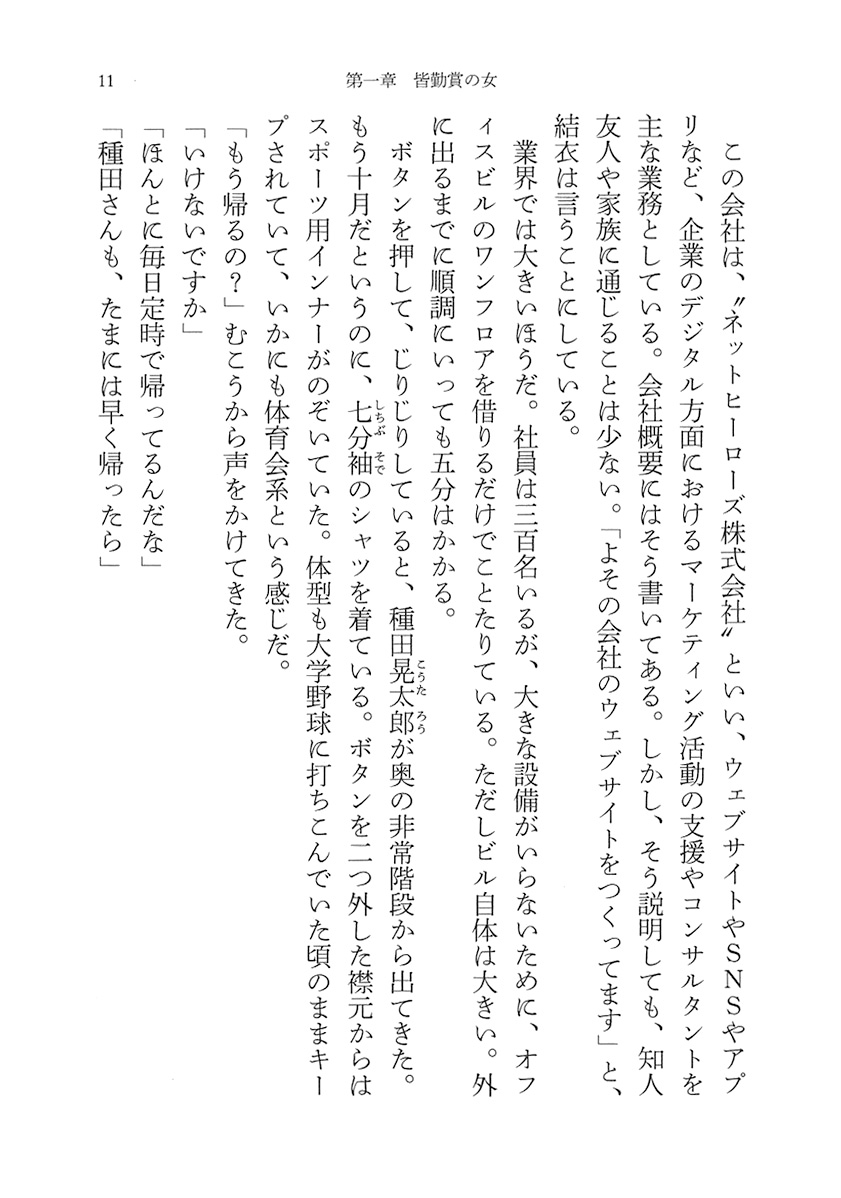 11
第一章　皆勤賞の女
　この会社は、〝ネットヒーローズ株式会社〟といい、ウェブサイトやＳＮＳやアプ
リなど、企業のデジタル方面におけるマーケティング活動の支援やコンサルタントを
主な業務としている。会社概要にはそう書いてある。しかし、そう説明しても、知人
友人や家族に通じることは少ない。「よその会社のウェブサイトをつくってます」と、
結衣は言うことにしている。
　業界では大きいほうだ。社員は三百名いるが、大きな設備がいらないために、オフ
ィスビルのワンフロアを借りるだけでことたりている。ただしビル自体は大きい。外
に出るまでに順調にいっても五分はかかる。
　ボタンを押して、じりじりしていると、種田晃太郎が奥の非常階段から出てきた。
こうたろう
もう十月だというのに、七分袖のシャツを着ている。ボタンを二つ外した襟元からは
しちぶそで
スポーツ用インナーがのぞいていた。体型も大学野球に打ちこんでいた頃のままキー
プされていて、いかにも体育会系という感じだ。
「もう帰るの？」むこうから声をかけてきた。
「いけないですか」
「ほんとに毎日定時で帰ってるんだな」
「種田さんも、たまには早く帰ったら」